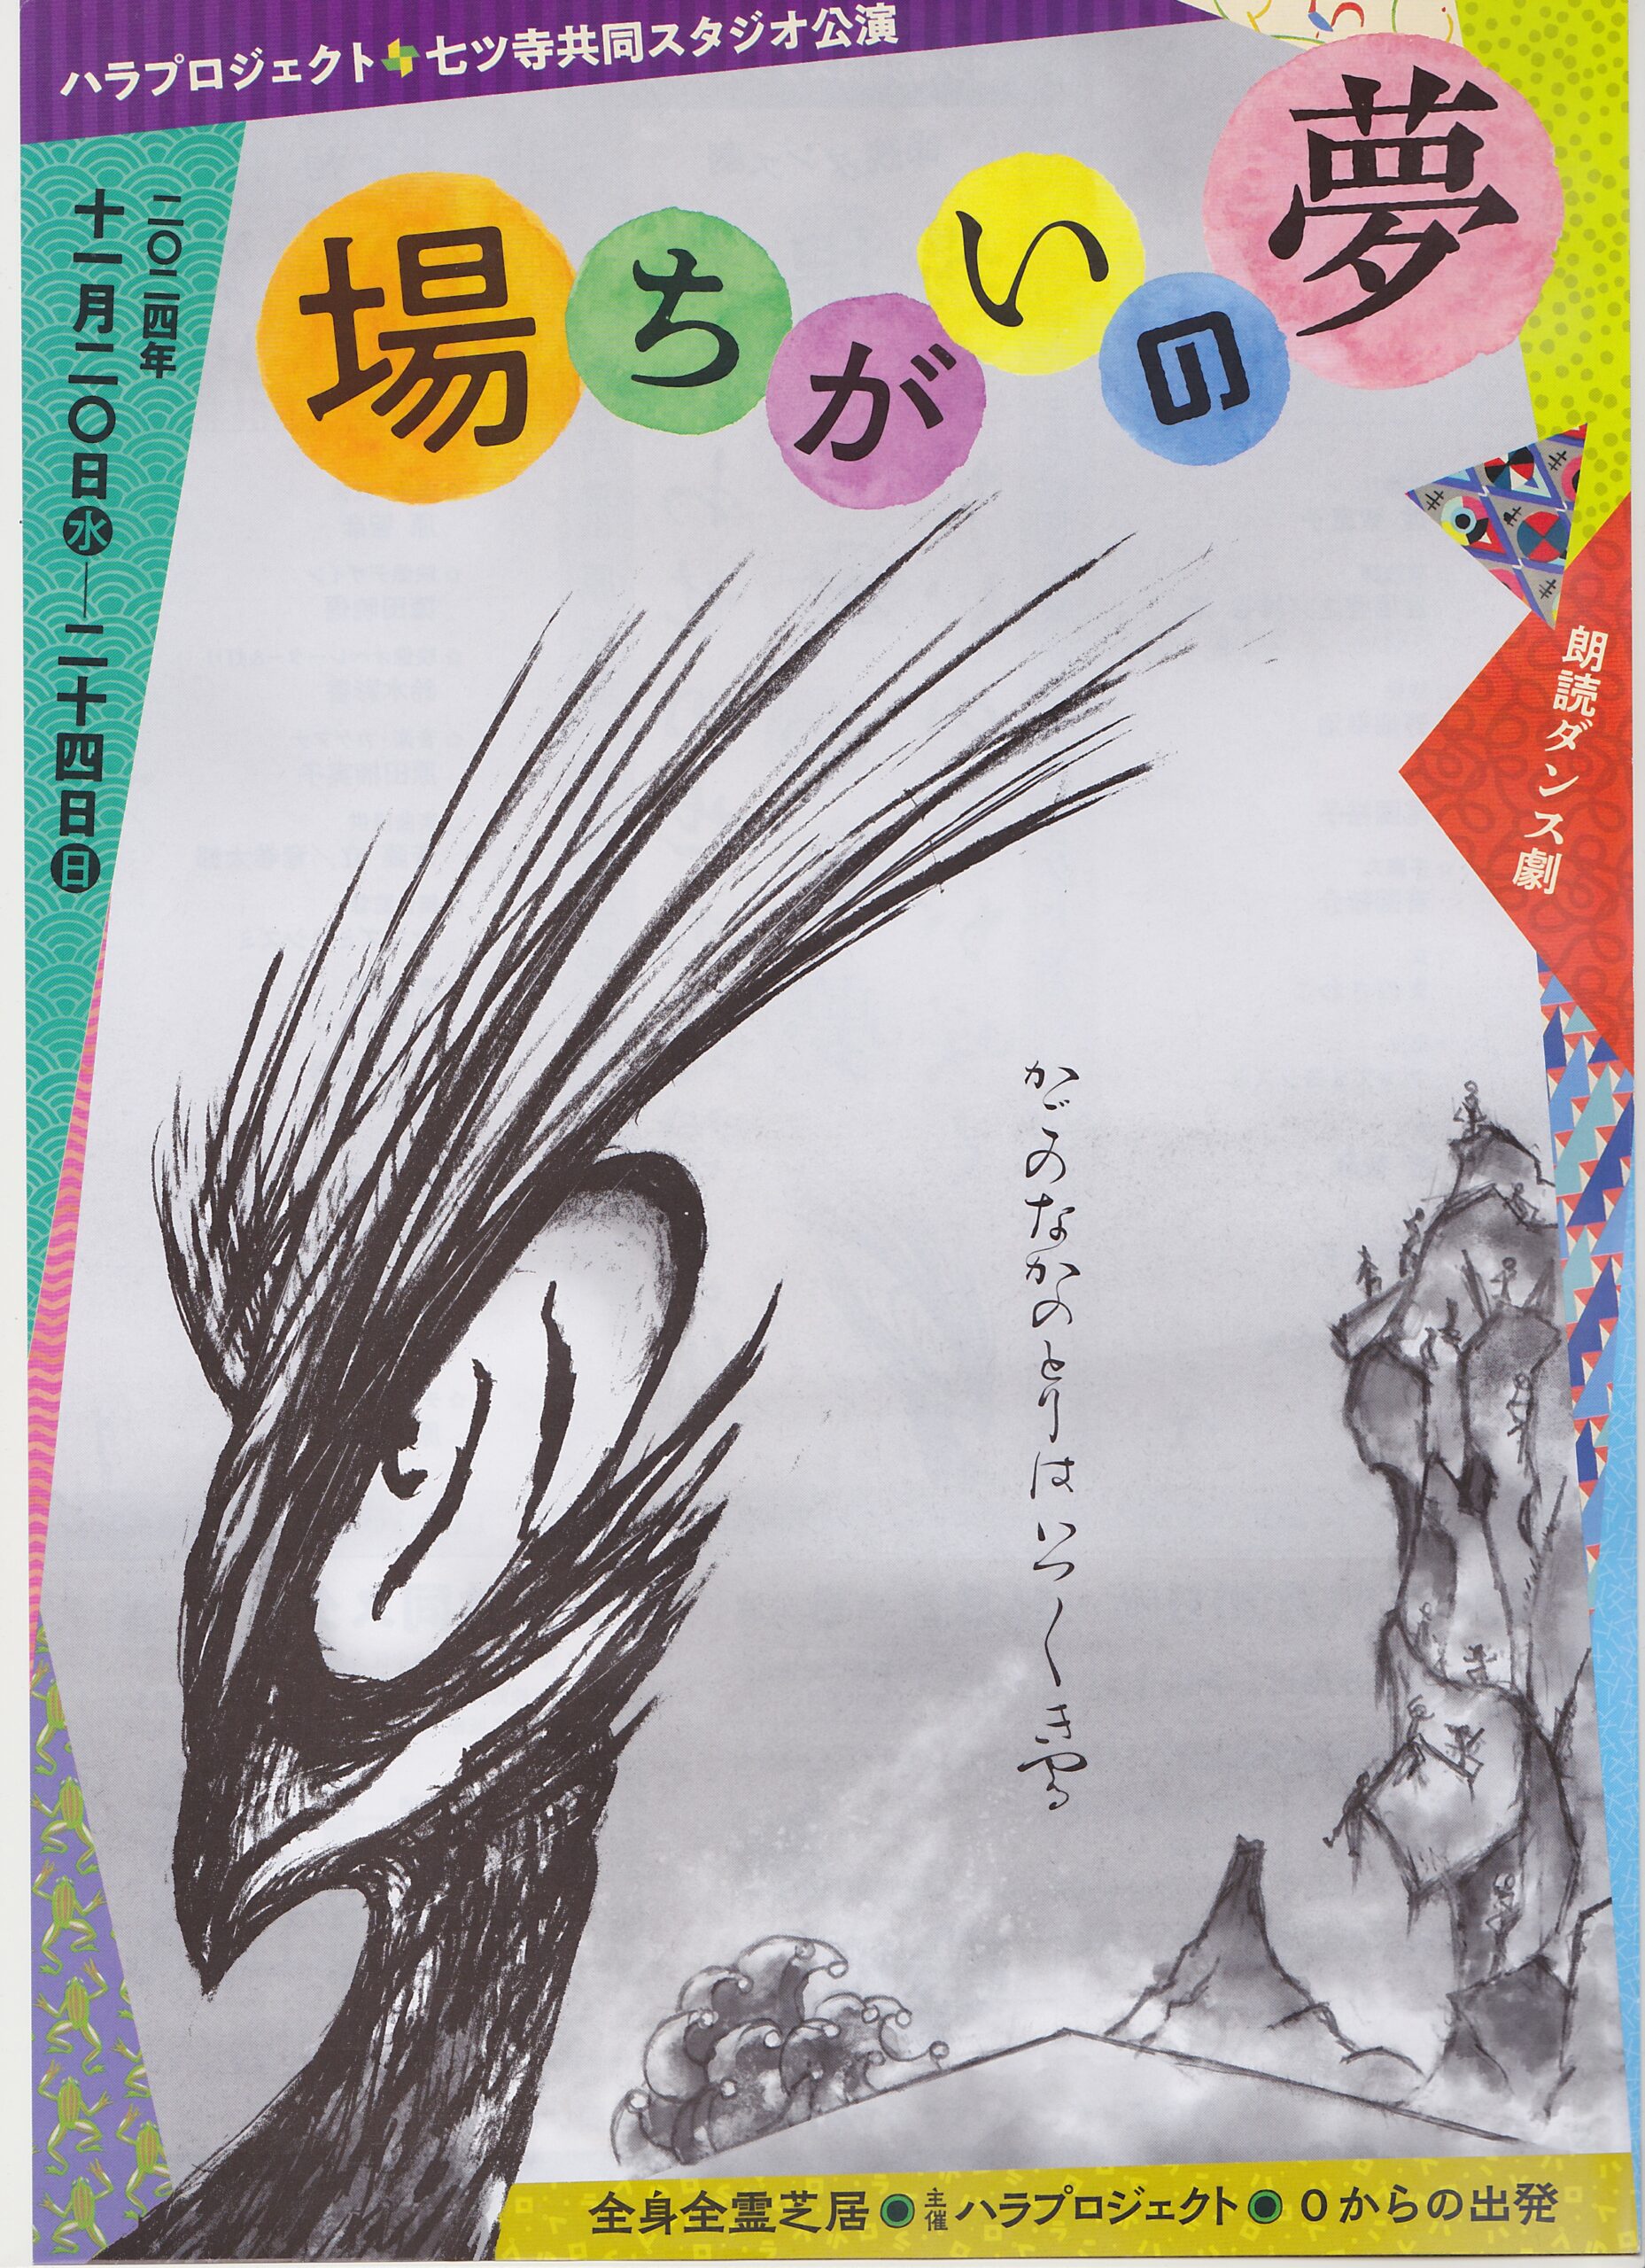 ハラプロジェクト 七ツ寺共同スタジオ公演
場ちがいの夢
二〇二四年
十一月二〇日水―二十四日日
朗読ダンス劇
かごのなかのとりはいつ〱
全身全霊芝居●主催ハラプロジェクト●0からの出発